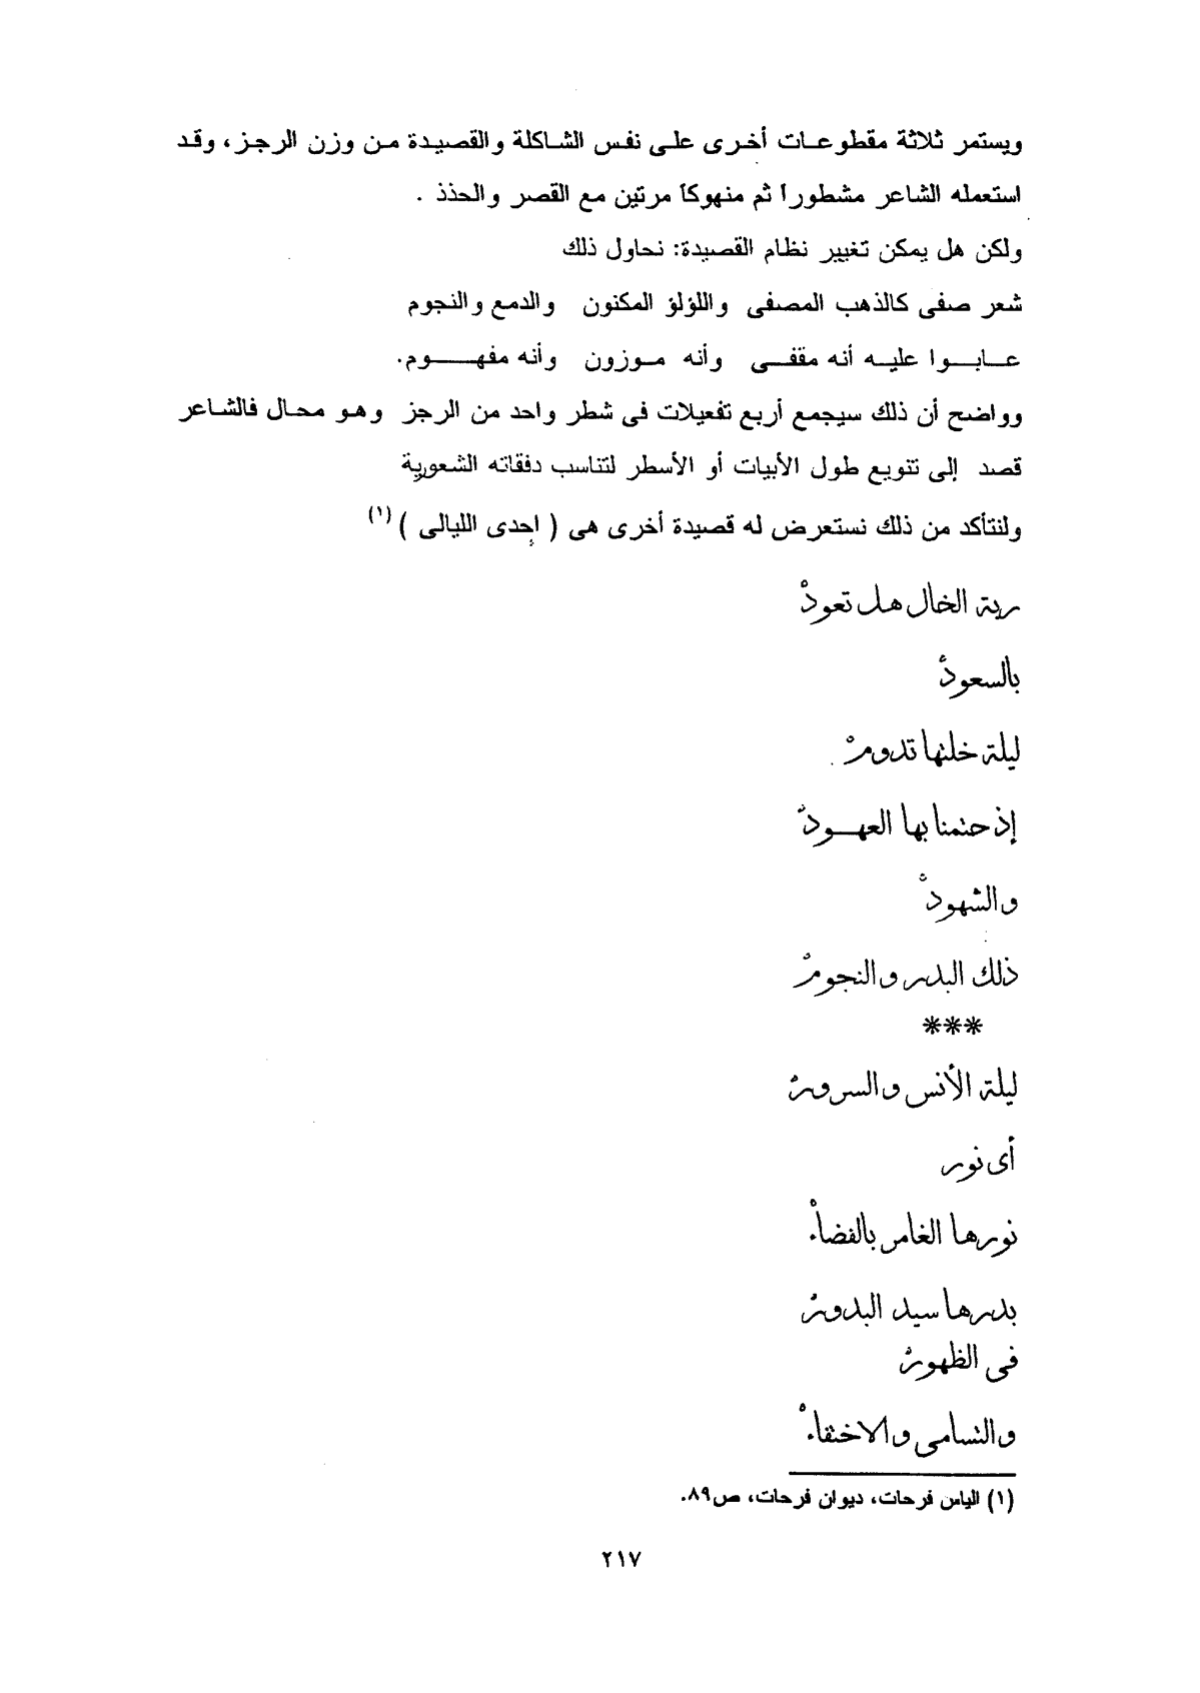 ويستمر ثلاثة مقطوعات أخرى على نفس الشاكلة والقصيدة من وزن الرجز، وقد
استعمله الشاعر مشطوراً ثم منهوكاً مرتين مع القصر والحذذ .
ولكن هل يمكن تغيير نظام القصيدة: نحاول ذلك
شعر صفى كالذهب المصفى واللؤلؤ المكنون والدمع والنجوم
عابوا عليه أنه مقفى وأنه موزون وأنه مفهوم.
وواضح أن ذلك سيجمع أربع تفعيلات فى شطر واحد من الرجز وهو محال فالشاعر
قصد إلى تنويع طول الأبيات أو الأسطر لتناسب دفقاته الشعورية
ولنتأكد من ذلك نستعرض له قصيدة أخرى هى ( إحدى الليالى ) (١)
ربة الخال هل تعودْ
بالسعودْ
ليلة خلتها تدومْ
إذ حتمنا بها العهودْ
والشهودْ
ذلك البدر والنجومْ
***
ليلة الأنس والسرورْ
أى نور
نورها الغامر بالفضاءْ
بدرها سيد البدورْ
فى الظهورْ
والتسامى والاختفاءْ
(١) الياس فرحات، ديوان فرحات، ص٨٩.
٢١٧